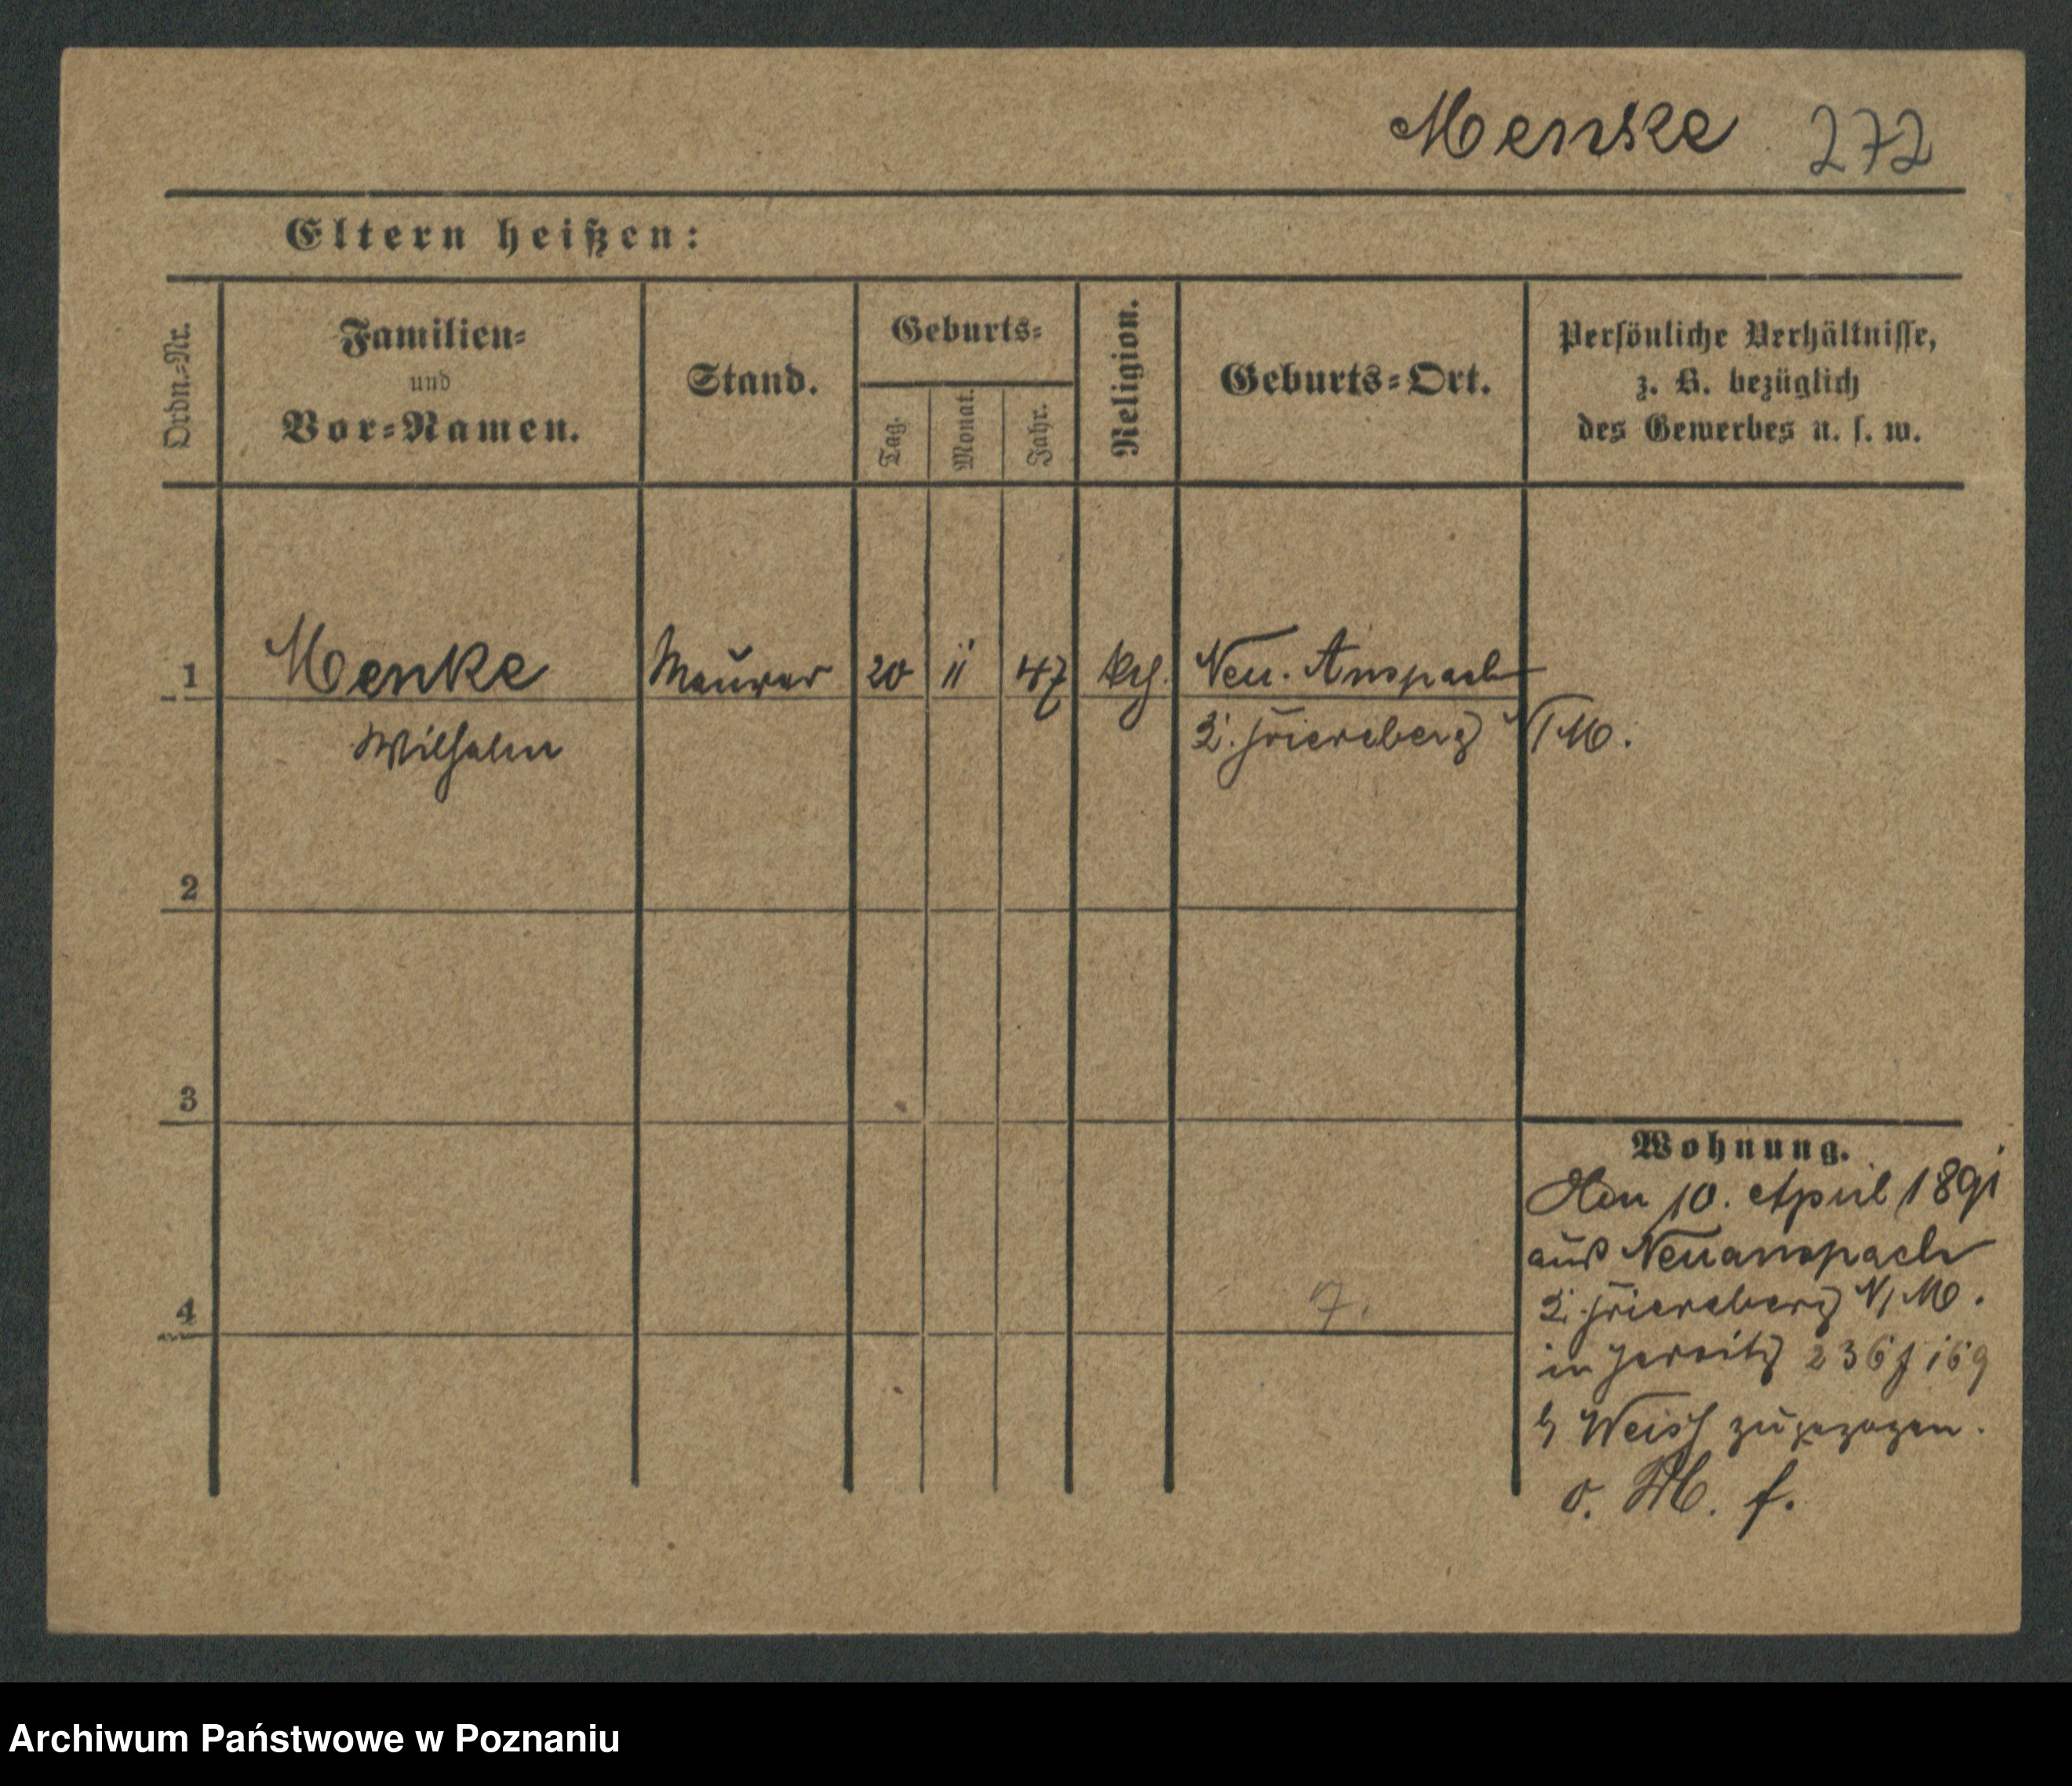 Menke 272
Eltern heißen:
Ordn.-Nr.
Familien-
und
Vor-Namen.
Stand.
Geburts-
Tag.
Monat.
Jahr.
Religion.
Geburts-Ort.
Persönliche Verhältnisse,
z. B. bezüglich
des Gewerbes u. s. w.
1 Menke Maurer 20 11 47 Neu. Anspach
Wilhelm K. Friedeberg N/M.
2
3
4 7.
Wohnung.
Den 10. April 1891
aus Neuanspach
K. Friedeberg N/M.
in Jersitz
b/ zugezogen.
o. M. f.
Archiwum Państwowe w Poznaniu